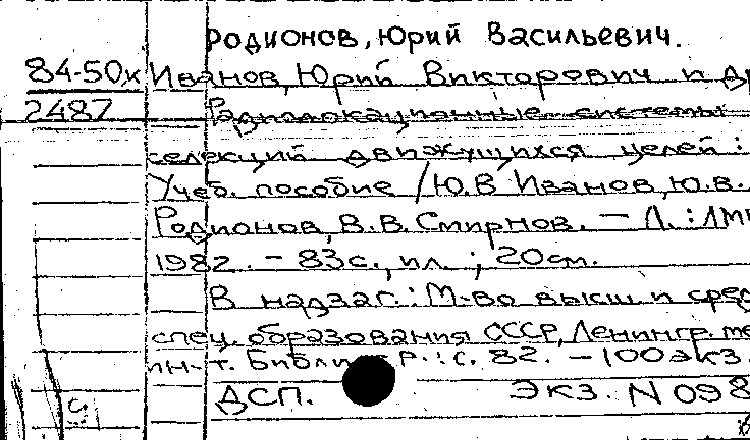 Родионов, Юрий Васильевич.
84-50к Иванов, Юрий Викторович и др
2487 Радиолокационные системы
селекции движущихся целей:
Учеб. пособие / Ю.В Иванов, Ю.В.
Родионов, В.В. Смирнов. — Л.: ЛМИ
1982. - 83с., ил.; 20см.
В надзаг.: М-во высш и сред
спец. образования СССР, Ленингр. ме
ин-т. Библи Р.: с. 82. - 100 экз
ДСП. Экз. N 098